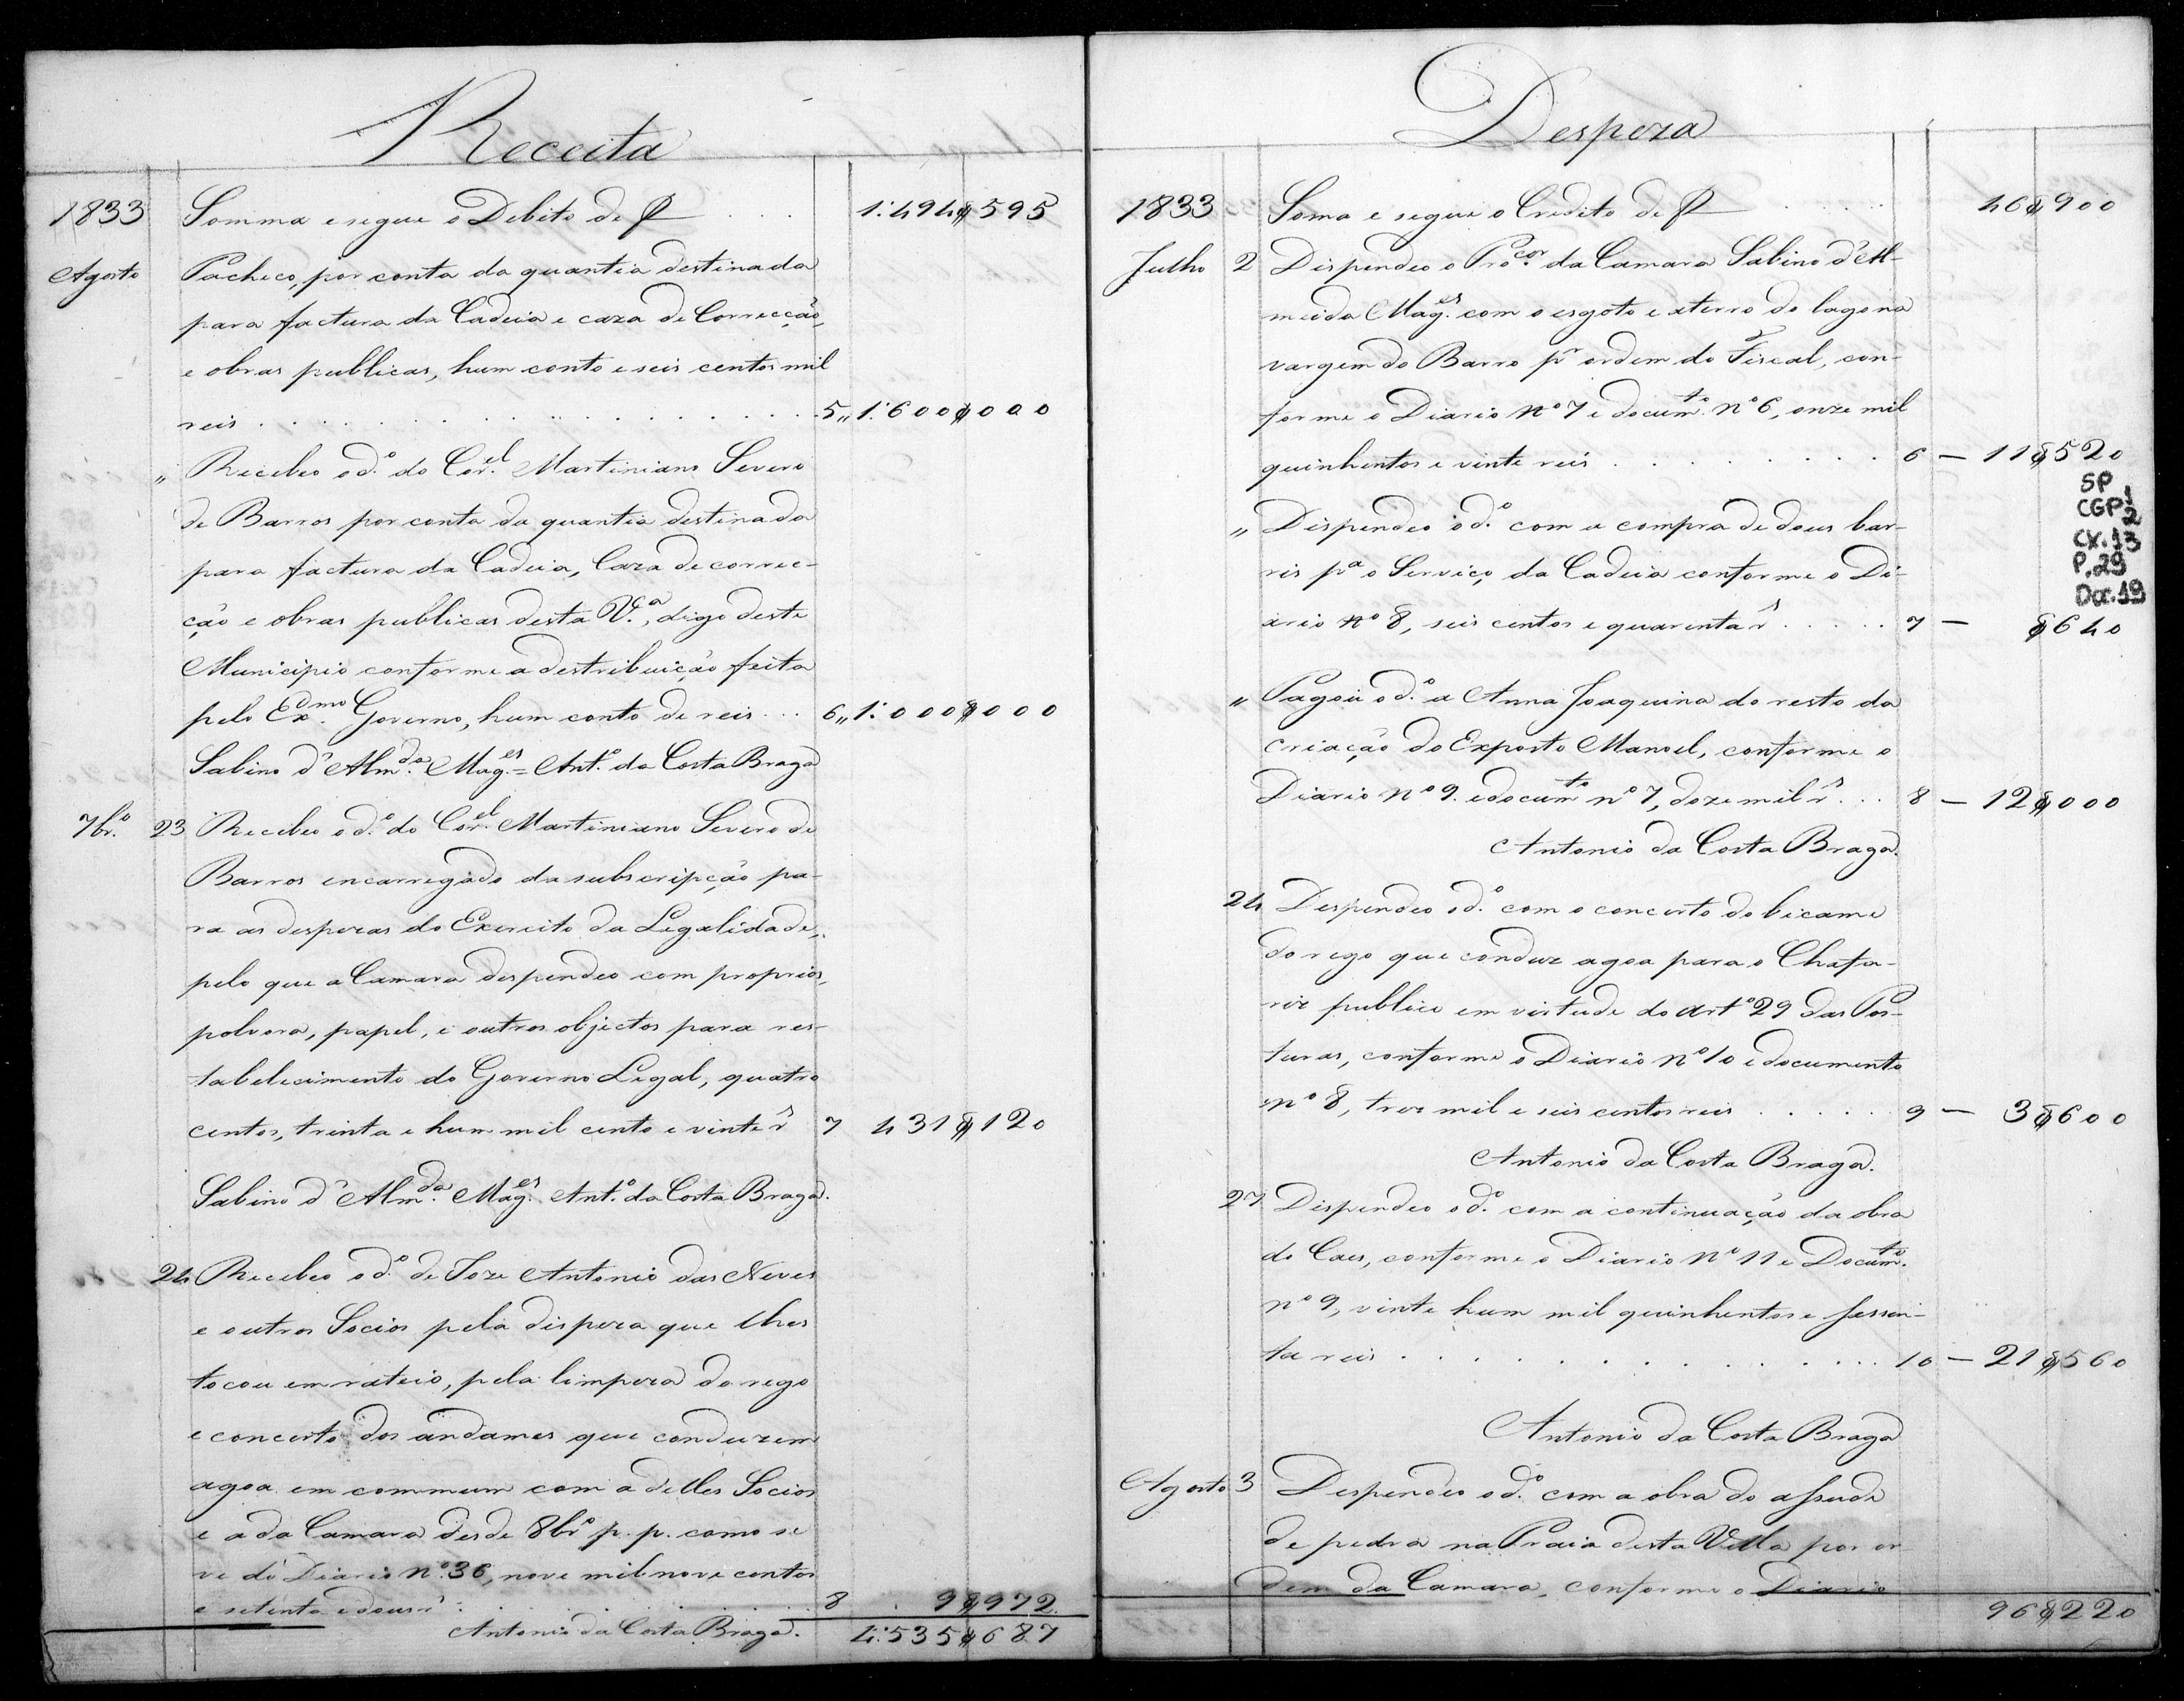 Receita
1833 Somma e segue o Debito de R . . . 1:494$595
Agosto Pacheco, por conta da quantia destinada
para factura da Cadeia e caza de Correcção,
e obras publicas, hum conto e seis centos mil
reis . . . . . . . . . . . . . 5,, 1:600$000
,, Recebeo o d.º do Cor.el Martiniano Severo
de Barros por conta da quantia destinada
para factura da Cadeia, Caza de correc-
ção e obras publicas desta V.ª, digo deste
Municipio conforme a destribuição feita
pelo Ex.mo Governo, hum conto de reis . . . 6,, 1:000$000
Sabino d'Alm.da Mag.es = Ant.º da Costa Braga
7br.º 23 Recebeo o d.º do Cor.el Martiniano Severo de
Barros encarregado da subscripção pa-
ra as despezas do Exercito da Legalidade,
pelo que a Camara despendeo com proprios,
polvora, papel, e outros objectos para res-
tabelecimento do Governo Legal, quatro
centos, trinta e hum mil cento e vinte r.s 7 431$120
Sabino d'Alm.da Mag.es Ant.º da Costa Braga.
24 Recebeo o d.º de Joze Antonio das Neves
e outros Socios pela dispeza que lhes
tocou em rateio, pela limpeza do rego
e concerto dos andames que conduzem
agoa em commum com a delles Socios
e a da Camara desde 8br.º p. p. como se
ve do Diario nº. 36, nove mil nove centos
e setenta e dous r.s . . . . . . . . 8 9$972
Antonio da Costa Braga. 4:535$687
Despeza
1833 Soma e segue o Credito de R . . . . . 46$900
Julho 2 Dispendeo o Pro.cor da Camara Sabino d'Al-
meida Mag.es com o esgoto e aterro do lago na
vargem do Barro p.r ordem do Fiscal, con-
forme o Diario nº 7 e docum.to nº 6, onze mil
quinhentos e vinte reis . . . . . . . . 6 — 11$520
SP
CGP 1/2
CX.13
P.29
Doc.19
,, Dispendeo o d.º com a compra de dous bar-
ris p.ª o Serviço da Cadeia conforme o Di-
ario nº 8, seis centos e quarenta r.s . . . . . 7 — $640
,, Pagou o d.º a Anna Joaquina do resto da
criação do Exposto Manoel, conforme o
Diario nº 9. e docum.to nº 7, doze mil r.s . . . 8 — 12$000
Antonio da Costa Braga.
24 Despendeo o d.º com o concerto do bicame
do rego que conduz agoa para o Chafa-
riz publico em virtude do artº 29 das Pos-
turas, conforme o Diario nº 10 e documento
nº 8, trez mil e seis centos reis . . . . . 9 — 3$600
Antonio da Costa Braga.
27 Dispendeo o d.º com a continuação da obra
do Caes, conforme o Diario nº 11 e Docum.to
nº 9, vinte hum mil quinhentos e sessen-
ta reis . . . . . . . . . . . . 10 — 21$560
Antonio da Costa Braga
Agosto 3 Despendeo o d.º com a obra do assude
de pedra na Praia desta Villa por or
dem da Camara, conforme o Diario
96$220